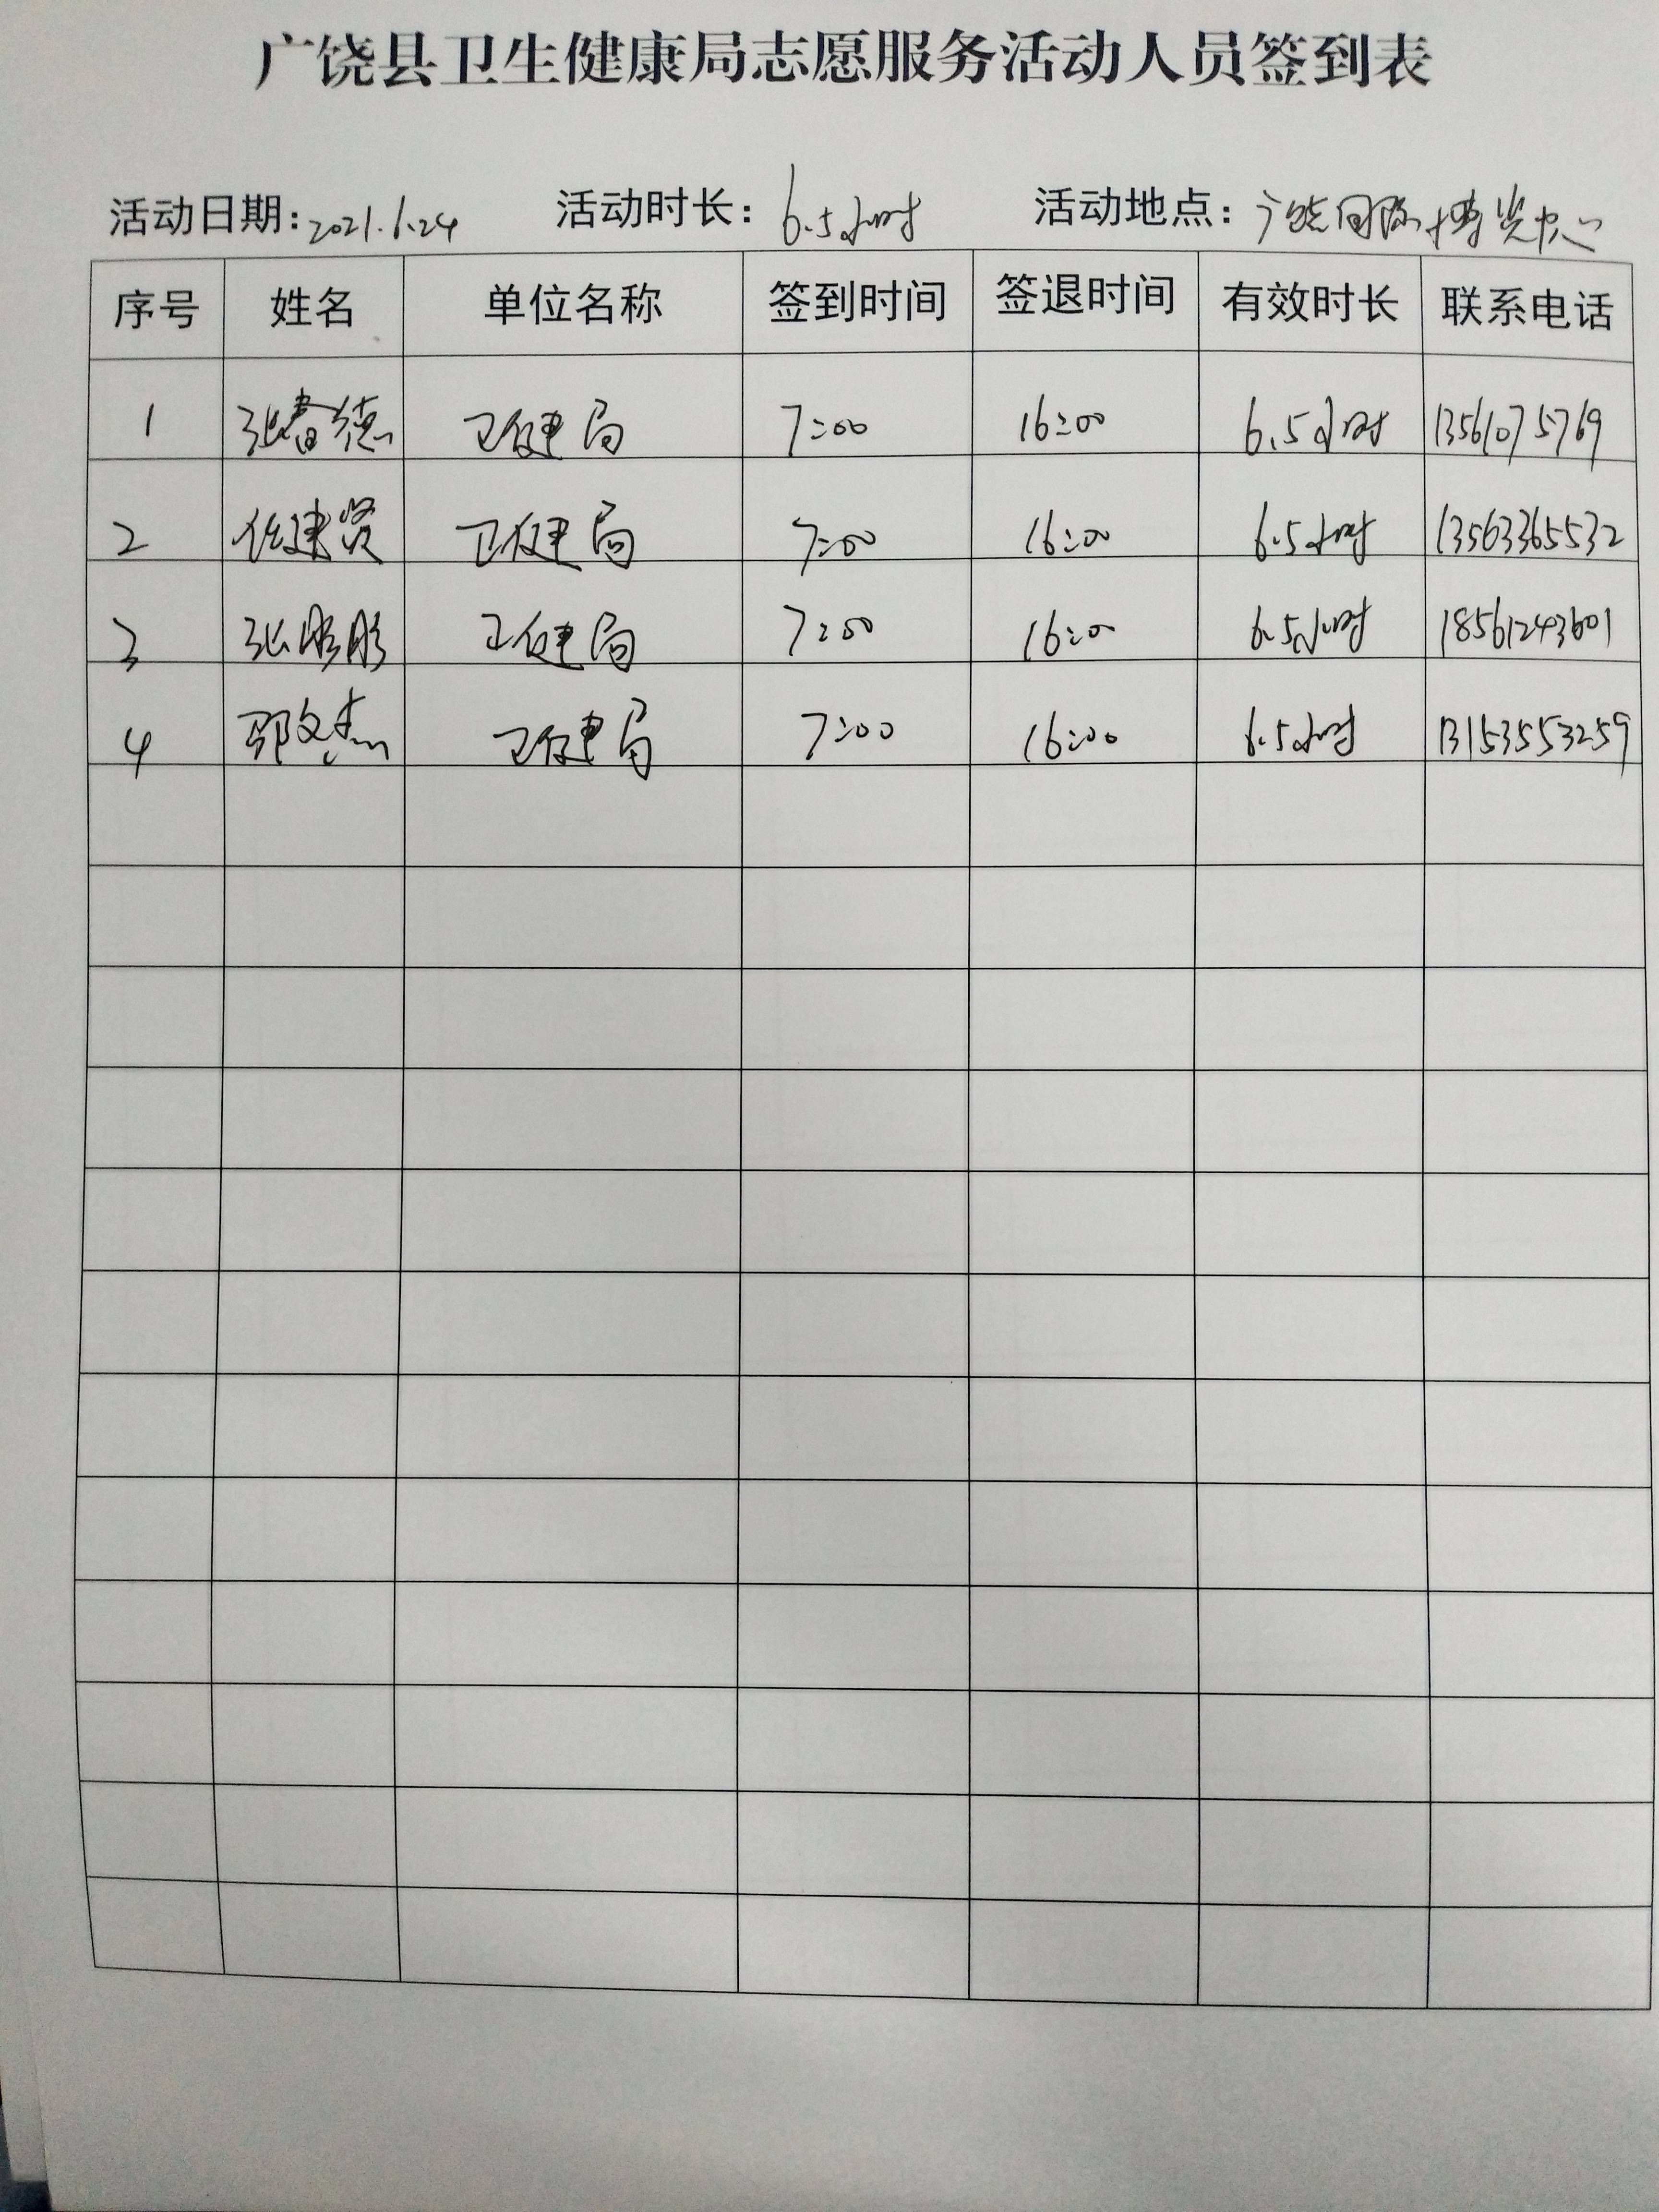 广饶县卫生健康局志愿服务活动人员签到表
活动日期：2021.6.24 活动时长：6.5小时 活动地点：广饶国际博览中心
序号 姓名 单位名称 签到时间 签退时间 有效时长 联系电话
1 张春德 卫健局 7:00 16:00 6.5小时 13561075769
2 任建贤 卫健局 7:00 16:00 6.5小时 13563365532
3 张彤彤 卫健局 7:00 16:00 6.5小时 18561243601
4 邵文杰 卫健局 7:00 16:00 6.5小时 13153553259